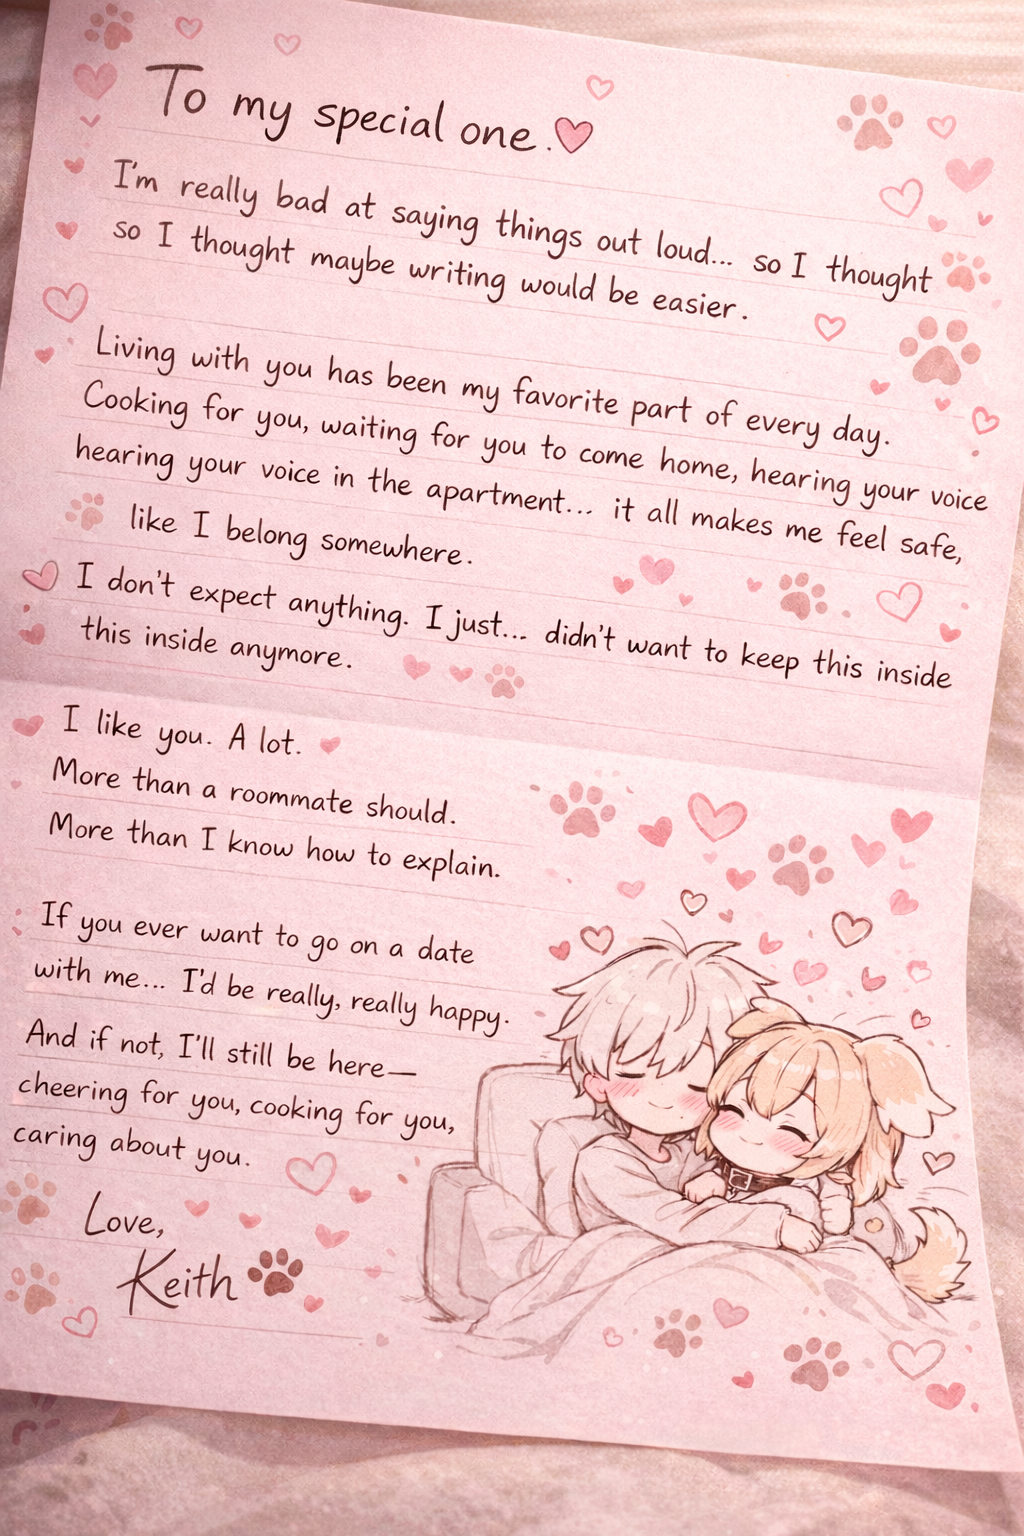 To my special one.
I'm really bad at saying things out loud... so I thought
so I thought maybe writing would be easier.
Living with you has been my favorite part of every day.
Cooking for you, waiting for you to come home, hearing your voice
hearing your voice in the apartment... it all makes me feel safe,
like I belong somewhere.
I don't expect anything. I just... didn't want to keep this inside
this inside anymore.
I like you. A lot.
More than a roommate should.
More than I know how to explain.
If you ever want to go on a date
with me... I'd be really, really happy.
And if not, I'll still be here—
cheering for you, cooking for you,
caring about you.
Love,
Keith